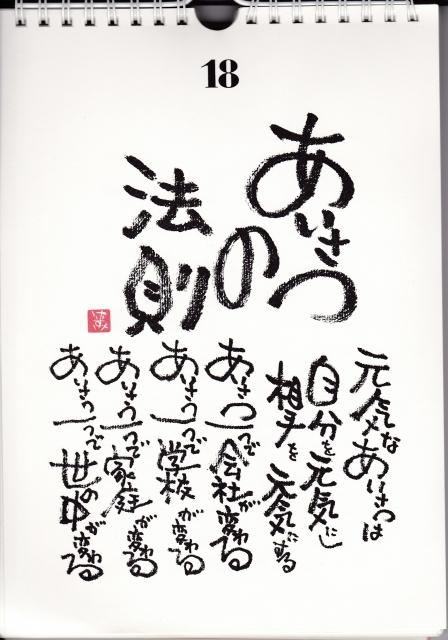 18
あいさつ
の
法則
元気なあいさつは
自分を元気にし
相手を元気にする
あいさつ一つで会社が変わる
あいさつ一つで学校が変わる
あいさつ一つで家庭が変わる
あいさつ一つで世の中が変わる